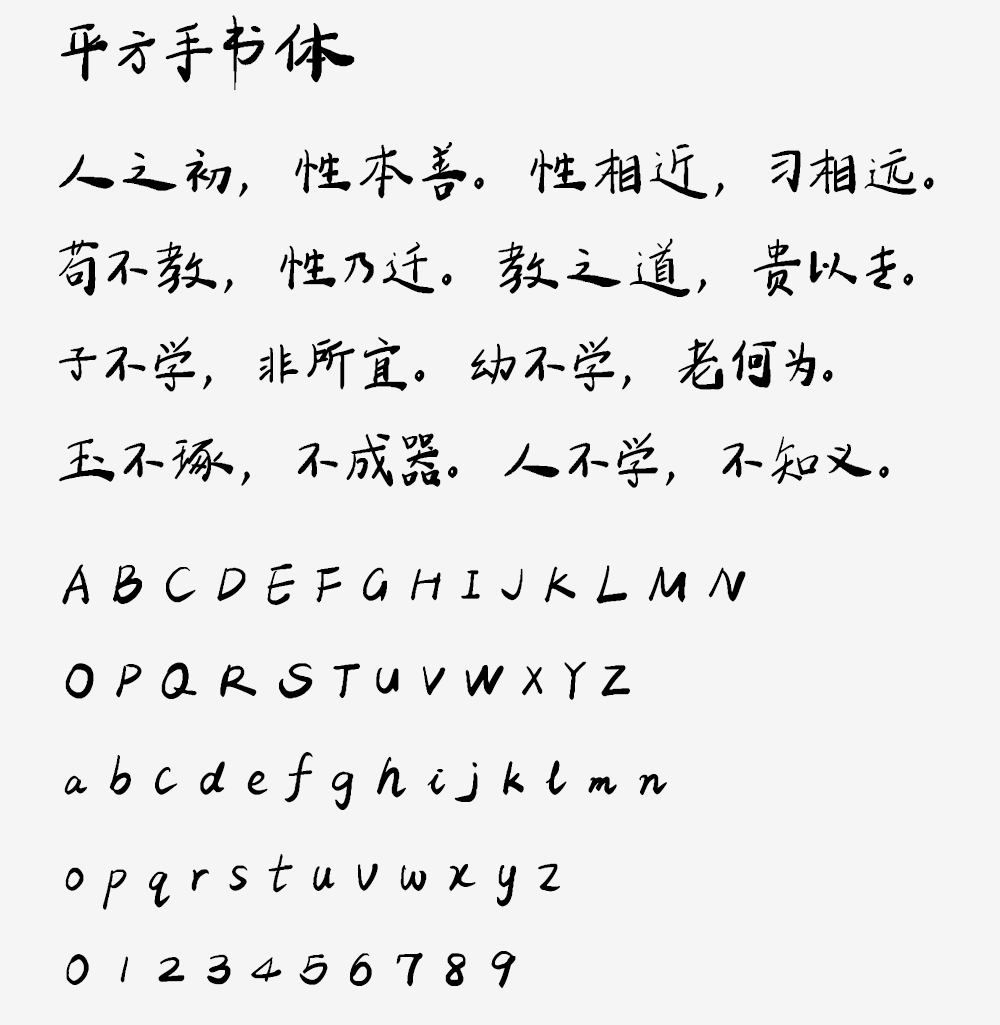 平方手书体
人之初，性本善。性相近，习相远。
苟不教，性乃迁。教之道，贵以专。
子不学，非所宜。幼不学，老何为。
玉不琢，不成器。人不学，不知义。
A B C D E F G H I J K L M N
O P Q R S T U V W X Y Z
a b c d e f g h i j k l m n
o p q r s t u v w x y z
0 1 2 3 4 5 6 7 8 9